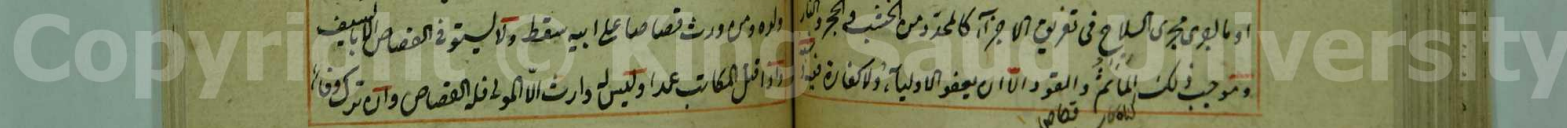 او ما اجرى مجرى السلاح فى تفريق الاجزآء كالمحدد من الخشب و الحجر والنار
وموجب ذلك المأثم والقود الا ان يعفو الاوليآء ولا كفارة فيه
كناه كار قصاص
ولده ومن ورث قصاصا على ابيه سقط ولا يستوفى القصاص الا بالسيف
واذا قتل المكاتب عمدا وليس له وارث الا المولى فله القصاص وان ترك وفاء
Copyright © King Saud University